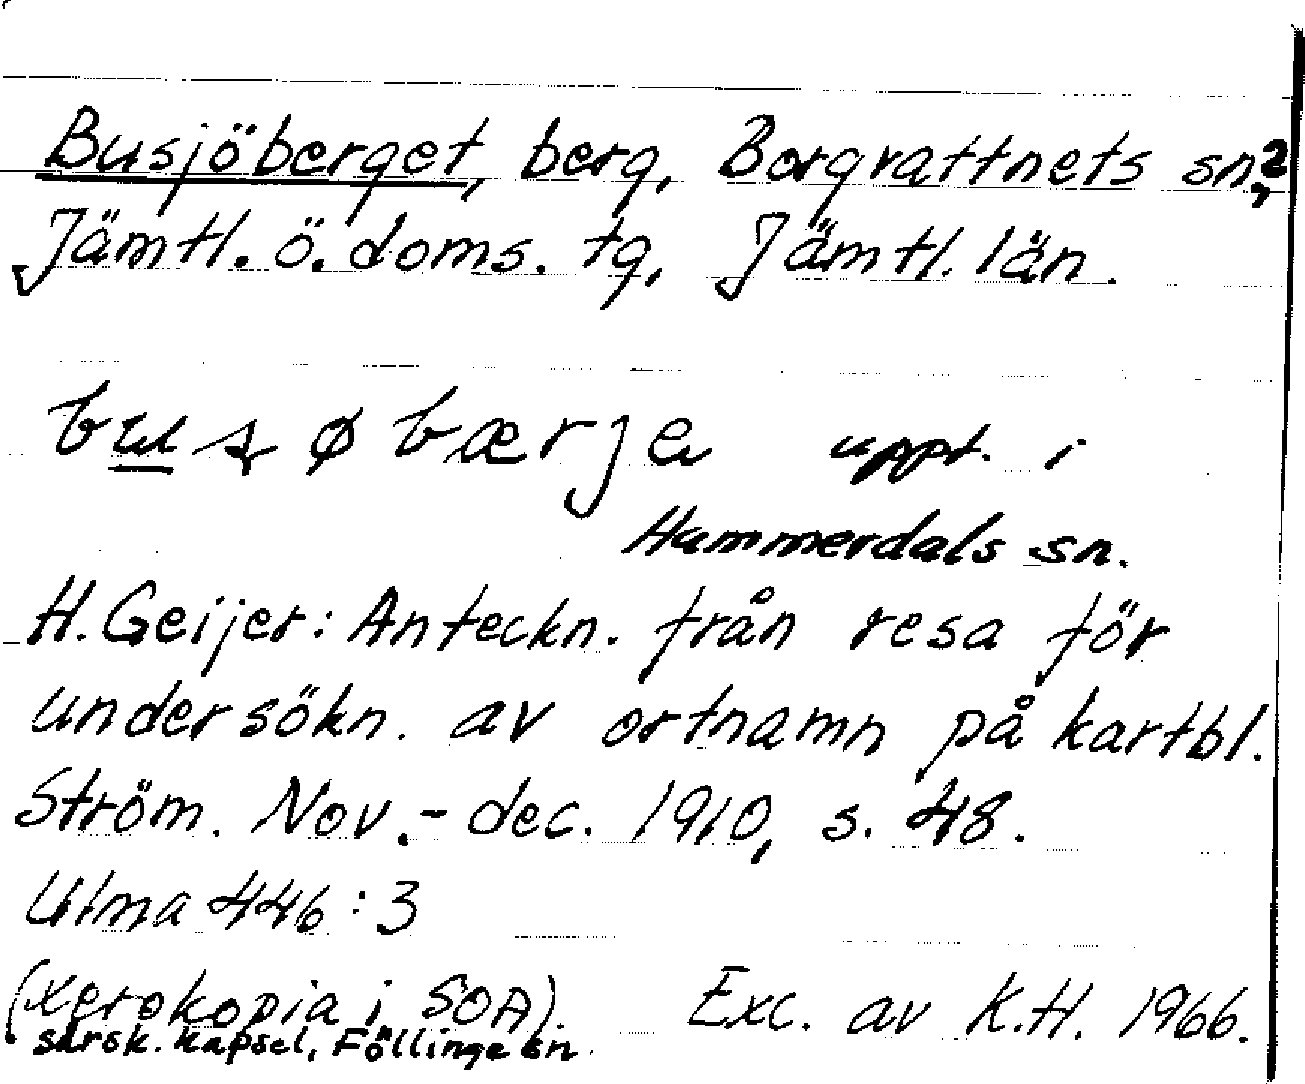 Busjöberget, berg, Borgvattnets sn,?
Jämtl. ö. doms. tg, Jämtl. län.
bærje uppt. i
Hammerdals sn.
H. Geijer: Anteckn. från resa för
undersökn. av ortnamn på kartbl.
Ström. Nov.- dec. 1910, s. 48.
Ulma 446:3
(Xerokopia i SOA). Exc. av K.H. 1966.
särsk. kapsel, Föllinge sn.